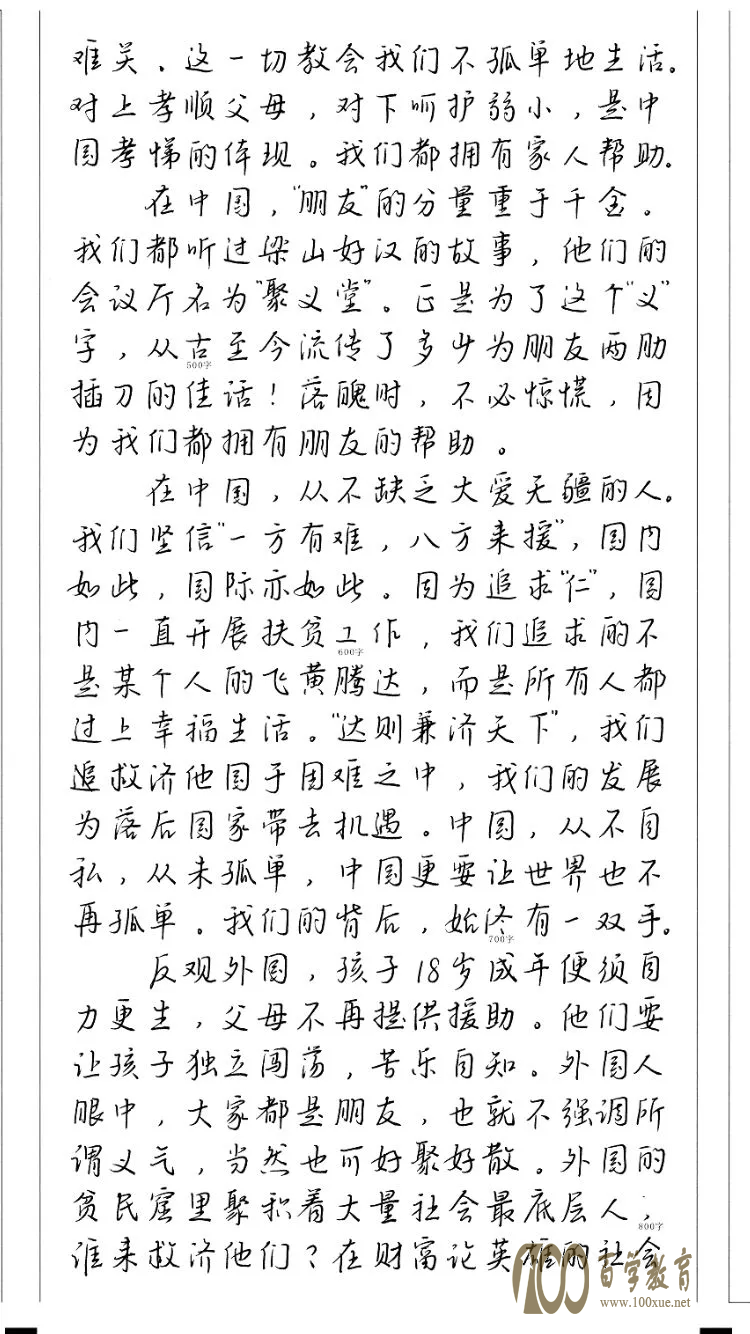 难关。这一切教会我们不孤单地生活。
对上孝顺父母，对下呵护弱小，是中
国孝悌的体现。我们都拥有家人帮助。
在中国，“朋友”的分量重于千金。
我们都听过梁山好汉的故事，他们的
会议厅名为“聚义堂”。正是为了这个“义”
字，从古至今流传了多少为朋友两肋
500字
插刀的佳话！落魄时，不必惊慌，因
为我们都拥有朋友的帮助。
在中国，从不缺乏大爱无疆的人。
我们坚信“一方有难，八方来援”，国内
如此，国际亦如此。因为追求“仁”，国
内一直开展扶贫工作，我们追求的不
600字
是某个人的飞黄腾达，而是所有人都
过上幸福生活。“达则兼济天下”，我们
追救济他国于困难之中，我们的发展
为落后国家带去机遇。中国，从不自
私，从未孤单，中国更要让世界也不
再孤单。我们的背后，始终有一双手。
700字
反观外国，孩子18岁成年便须自
力更生，父母不再提供援助。他们要
让孩子独立闯荡，苦乐自知。外国人
眼中，大家都是朋友，也就不强调所
谓义气，当然也可好聚好散。外国的
贫民窟里聚积着大量社会最底层人，
800字
谁来救济他们？在财富论英雄的社会
100 百学教育
www.100xue.net